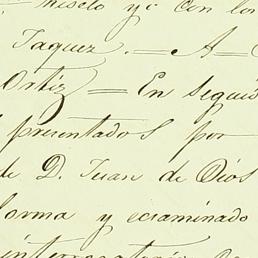 y con los
Taquez.— A—
Ortiz— En seguid
presentados por
de D. Juan de Dios
forma y ecsaminado
interrogatorio